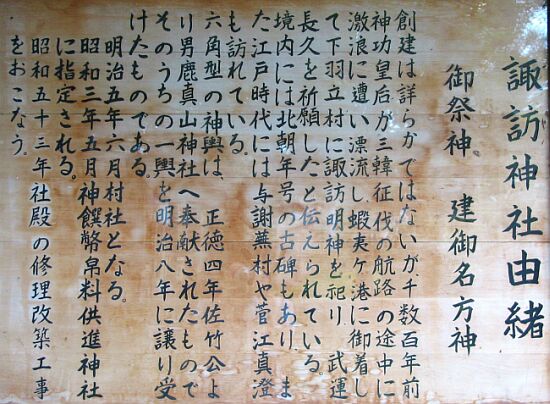 諏訪神社由緒
御祭神　建御名方神
創建は詳らかではないが、千数百年前
神功皇后が三韓征伐の航路の途中に
激浪に遭い漂流し、蝦夷ケ港に御着し
て下羽立村に諏訪明神を祀り、武運
長久を祈願したと伝えられている。
境内には北朝年号の古碑もあり、ま
た江戸時代には与謝蕪村や菅江真澄
も訪れている。
六角型の神輿は、正徳四年佐竹公よ
り男鹿真山神社へ奉献されたもので
そのうちの一輿を明治八年に譲り受
けたものである。
明治五年六月村社となる。
昭和三年五月神饌幣帛料供進神社
に指定される。
昭和五十三年社殿の修理改築工事
をおこなう。